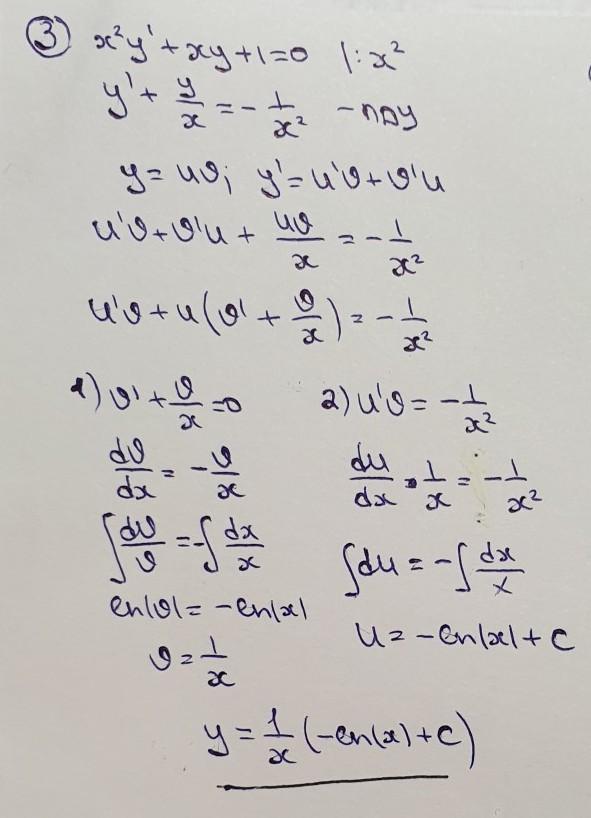 ③ x²y' + xy + 1 = 0 |: x²
y' + y/x = -1/x² - ЛДУ
y = uv; y' = u'v + v'u
u'v + v'u + uv/x = -1/x²
u'v + u(v' + v/x) = -1/x²
1) v' + v/x = 0
dv/dx = -v/x
∫dv/v = -∫dx/x
ln|v| = -ln|x|
v = 1/x
2) u'v = -1/x²
du/dx · 1/x = -1/x²
∫du = -∫dx/x
u = -ln|x| + C
y = 1/x (-ln(x) + C)